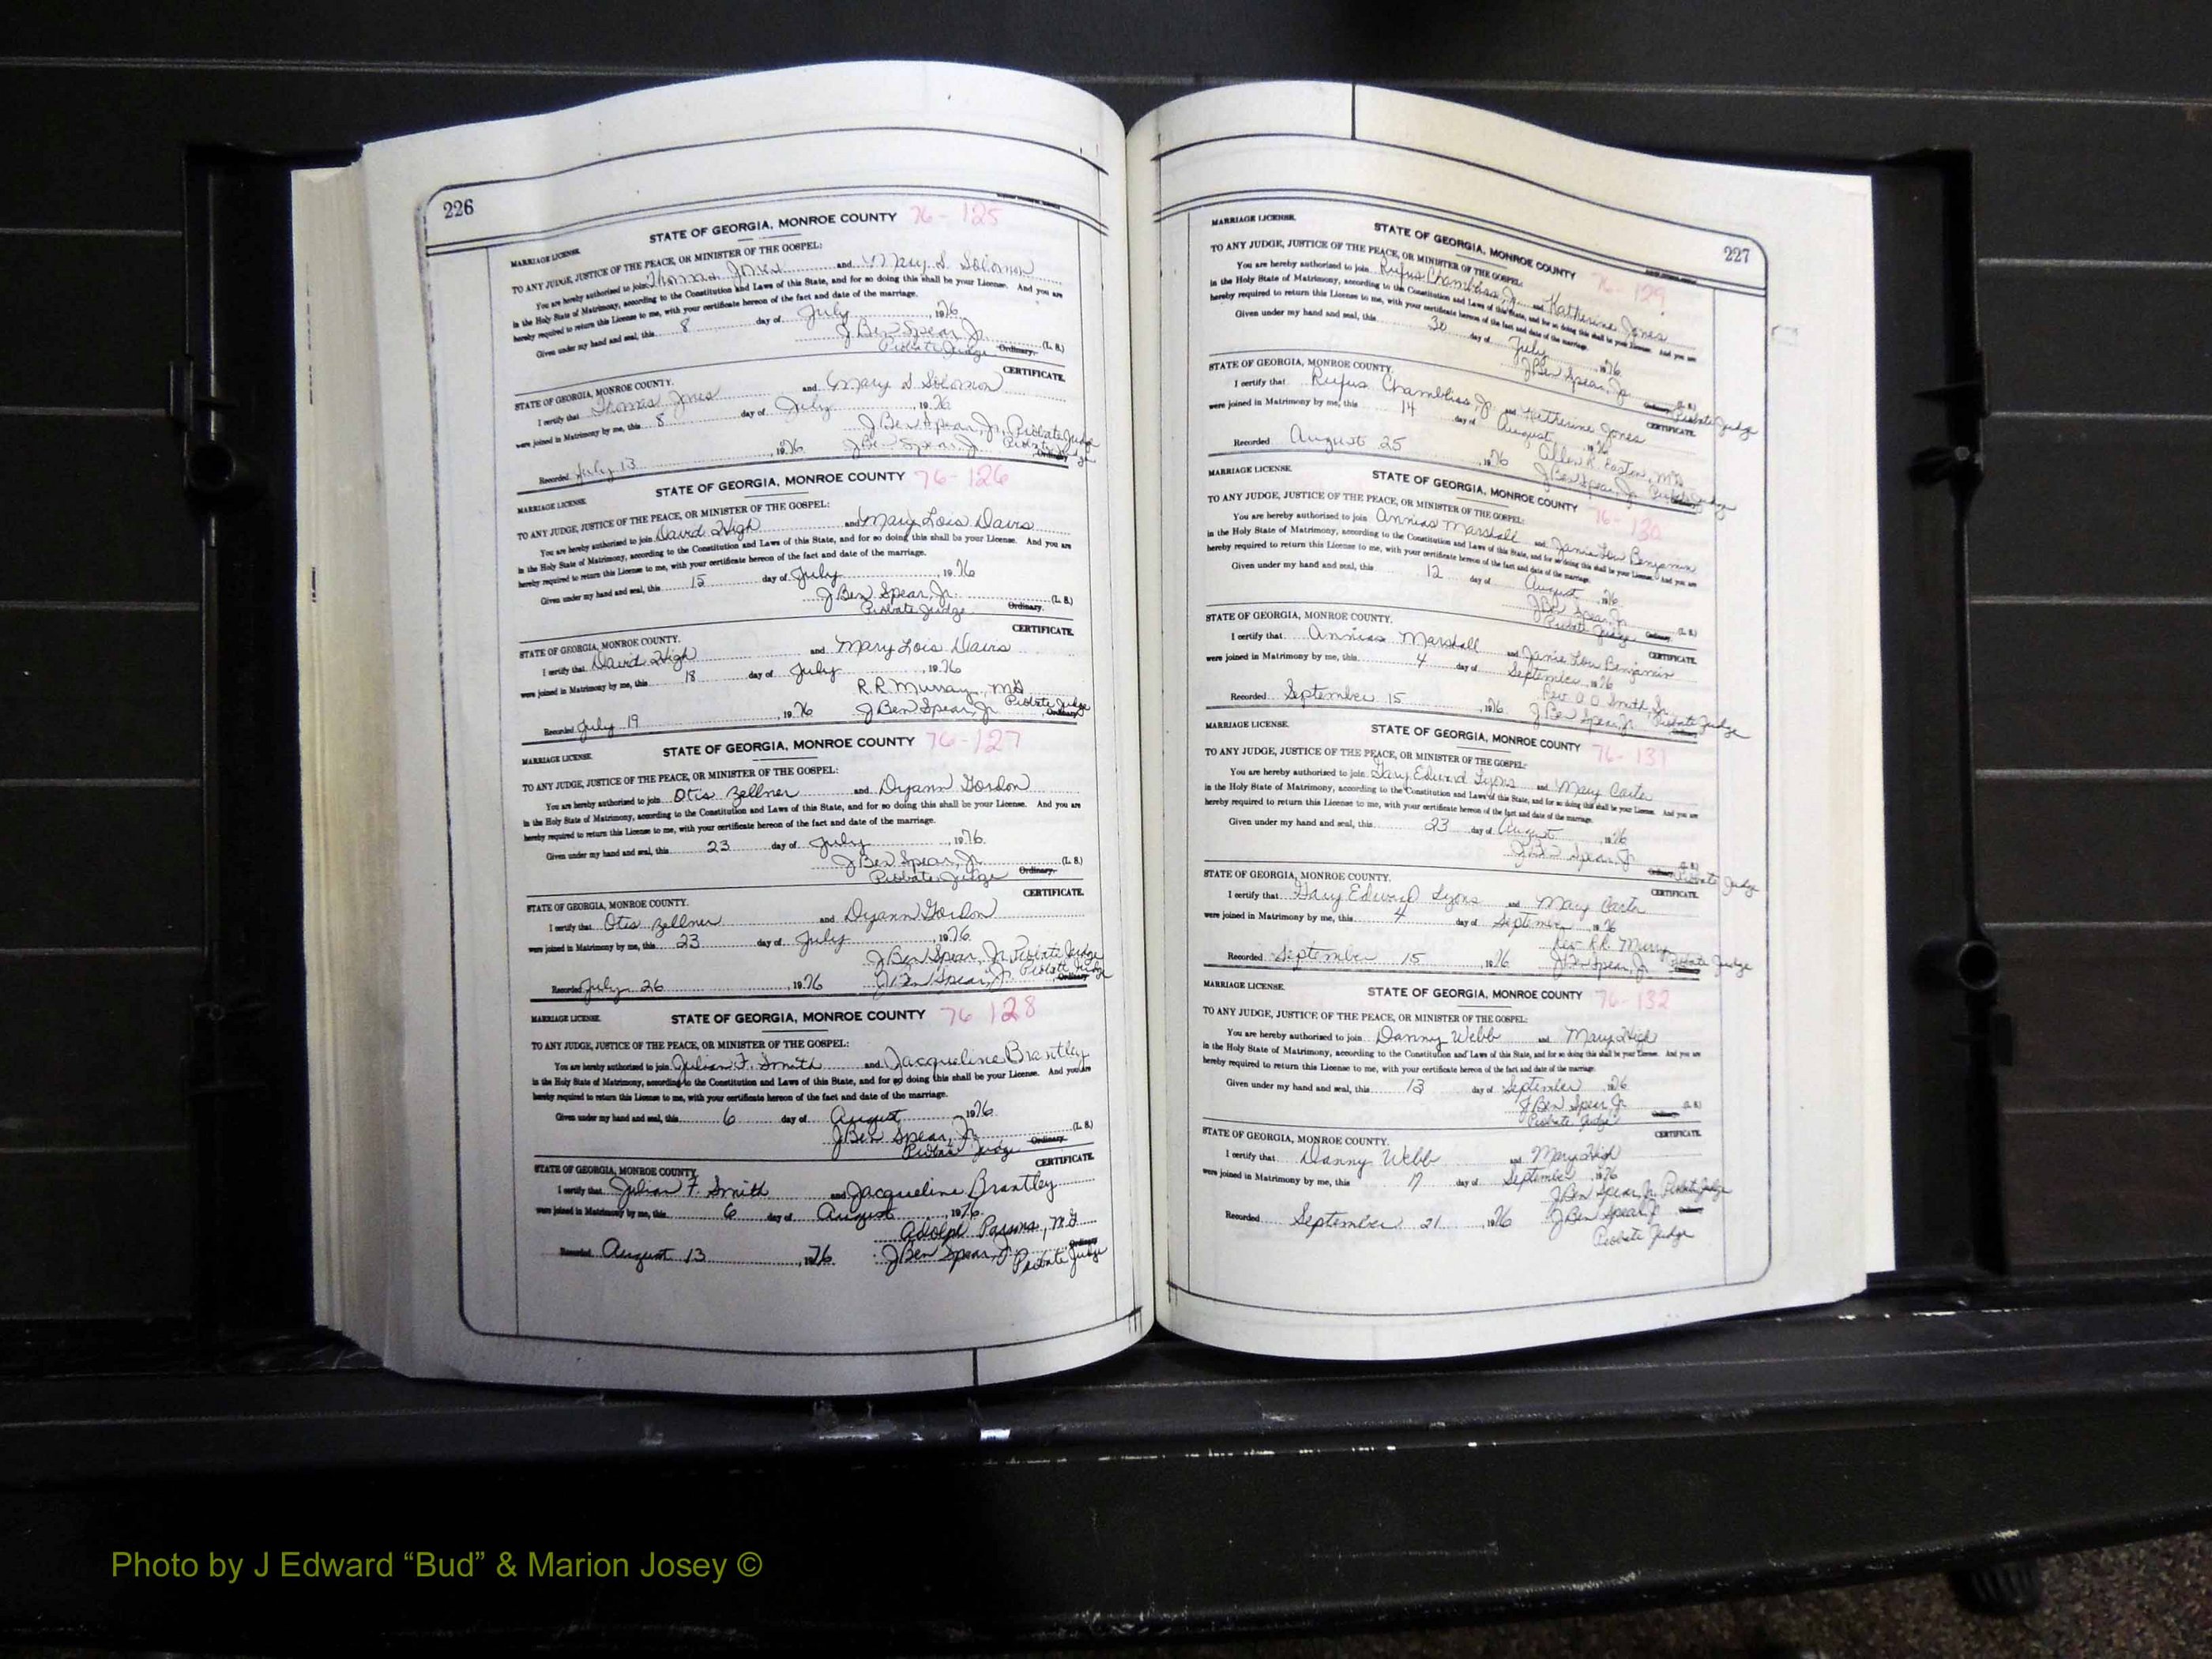 226
STATE OF GEORGIA, MONROE COUNTY 76-125
MARRIAGE LICENSE.
TO ANY JUDGE, JUSTICE OF THE PEACE, OR MINISTER OF THE GOSPEL:
You are hereby authorized to join Thomas Jones and Mary S. Solomon
in the Holy State of Matrimony, according to the Constitution and Laws of this State, and for so doing this shall be your License. And you are
hereby required to return this License to me, with your certificate hereon of the fact and date of the marriage.
Given under my hand and seal, this 8 day of July, 1976
J Ben Spear, Jr. (L. S.)
Probate Judge Ordinary.
CERTIFICATE.
STATE OF GEORGIA, MONROE COUNTY.
I certify that Thomas Jones and Mary S Solomon
were joined in Matrimony by me, this 8 day of July, 1976
J Ben Spear, Jr, Probate Judge
Recorded July 13, 1976 J Ben Spear, Jr Probate Judge Ordinary
STATE OF GEORGIA, MONROE COUNTY 76-126
MARRIAGE LICENSE.
TO ANY JUDGE, JUSTICE OF THE PEACE, OR MINISTER OF THE GOSPEL:
You are hereby authorized to join David High and Mary Lois Davis
in the Holy State of Matrimony, according to the Constitution and Laws of this State, and for so doing this shall be your License. And you are
hereby required to return this License to me, with your certificate hereon of the fact and date of the marriage.
Given under my hand and seal, this 15 day of July, 1976
J Ben Spear, Jr. (L. S.)
Probate Judge Ordinary.
CERTIFICATE.
STATE OF GEORGIA, MONROE COUNTY.
I certify that David High and Mary Lois Davis
were joined in Matrimony by me, this 18 day of July, 1976
R.R. Murray, MG
Recorded July 19, 1976 J Ben Spear, Jr Probate Judge Ordinary
STATE OF GEORGIA, MONROE COUNTY 76-127
MARRIAGE LICENSE.
TO ANY JUDGE, JUSTICE OF THE PEACE, OR MINISTER OF THE GOSPEL:
You are hereby authorized to join Otis Zellner and Dyann Gordon
in the Holy State of Matrimony, according to the Constitution and Laws of this State, and for so doing this shall be your License. And you are
hereby required to return this License to me, with your certificate hereon of the fact and date of the marriage.
Given under my hand and seal, this 23 day of July, 1976.
J Ben Spear, Jr. (L. S.)
Probate Judge Ordinary.
CERTIFICATE.
STATE OF GEORGIA, MONROE COUNTY.
I certify that Otis Zellner and Dyann Gordon
were joined in Matrimony by me, this 23 day of July, 1976.
J Ben Spear, Jr Probate Judge
Recorded July 26, 1976 J Ben Spear, Jr. Probate Judge Ordinary
MARRIAGE LICENSE. STATE OF GEORGIA, MONROE COUNTY 76 128
TO ANY JUDGE, JUSTICE OF THE PEACE, OR MINISTER OF THE GOSPEL:
You are hereby authorized to join Julian F. Smith and Jacqueline Brantley
in the Holy State of Matrimony, according to the Constitution and Laws of this State, and for so doing this shall be your License. And you are
hereby required to return this License to me, with your certificate hereon of the fact and date of the marriage.
Given under my hand and seal, this 6 day of August, 1976.
J Ben Spear, Jr (L. S.)
Probate Judge Ordinary.
CERTIFICATE.
STATE OF GEORGIA, MONROE COUNTY.
I certify that Julian F. Smith and Jacqueline Brantley
were joined in Matrimony by me, this 6 day of August, 1976.
Adolph Parsons, MG
Recorded August 13, 1976. J Ben Spear, Jr Probate Judge Ordinary
227
MARRIAGE LICENSE. STATE OF GEORGIA, MONROE COUNTY 76-129
TO ANY JUDGE, JUSTICE OF THE PEACE, OR MINISTER OF THE GOSPEL:
You are hereby authorized to join Rufus Chambliss, Jr. and Katherine Jones
in the Holy State of Matrimony, according to the Constitution and Laws of this State, and for so doing this shall be your License. And you are
hereby required to return this License to me, with your certificate hereon of the fact and date of the marriage.
Given under my hand and seal, this 30 day of July, 1976.
J Ben Spear, Jr (L. S.)
Ordinary Probate Judge
STATE OF GEORGIA, MONROE COUNTY. CERTIFICATE.
I certify that Rufus Chambliss, Jr. and Katherine Jones
were joined in Matrimony by me, this 14 day of August, 1976
Allen R. Easton, MG
Recorded August 25, 1976 J Ben Spear, Jr Probate Judge Ordinary
MARRIAGE LICENSE. STATE OF GEORGIA, MONROE COUNTY 76-130
TO ANY JUDGE, JUSTICE OF THE PEACE, OR MINISTER OF THE GOSPEL:
You are hereby authorized to join Annias Marshall and Janie Lou Benjamin
in the Holy State of Matrimony, according to the Constitution and Laws of this State, and for so doing this shall be your License. And you are
hereby required to return this License to me, with your certificate hereon of the fact and date of the marriage.
Given under my hand and seal, this 12 day of August, 1976
J Ben Spear, Jr (L. S.)
Probate Judge Ordinary.
STATE OF GEORGIA, MONROE COUNTY. CERTIFICATE.
I certify that Annias Marshall and Janie Lou Benjamin
were joined in Matrimony by me, this 4 day of September, 1976
Rev. O O Smith, Sr.
Recorded September 15, 1976 J Ben Spear, Jr. Probate Judge Ordinary
MARRIAGE LICENSE. STATE OF GEORGIA, MONROE COUNTY 76-131
TO ANY JUDGE, JUSTICE OF THE PEACE, OR MINISTER OF THE GOSPEL:
You are hereby authorized to join Gary Edward Lyons and Mary Carter
in the Holy State of Matrimony, according to the Constitution and Laws of this State, and for so doing this shall be your License. And you are
hereby required to return this License to me, with your certificate hereon of the fact and date of the marriage.
Given under my hand and seal, this 23 day of August, 1976
J Ben Spear, Jr (L. S.)
Ordinary Probate Judge
STATE OF GEORGIA, MONROE COUNTY. CERTIFICATE.
I certify that Gary Edward Lyons and Mary Carter
were joined in Matrimony by me, this 4 day of September, 1976
Rev R.R. Murry
Recorded September 15, 1976 J Ben Spear, Jr Probate Judge Ordinary
MARRIAGE LICENSE. STATE OF GEORGIA, MONROE COUNTY 76-132
TO ANY JUDGE, JUSTICE OF THE PEACE, OR MINISTER OF THE GOSPEL:
You are hereby authorized to join Danny Webb and Mary High
in the Holy State of Matrimony, according to the Constitution and Laws of this State, and for so doing this shall be your License. And you are
hereby required to return this License to me, with your certificate hereon of the fact and date of the marriage.
Given under my hand and seal, this 13 day of September, 1976
J Ben Spear, Jr (L. S.)
Probate Judge Ordinary.
STATE OF GEORGIA, MONROE COUNTY. CERTIFICATE.
I certify that Danny Webb and Mary High
were joined in Matrimony by me, this 17 day of September, 1976
J Ben Spear, Jr Probate Judge
Recorded September 21, 1976 J Ben Spear, Jr Ordinary
Probate Judge
Photo by J Edward “Bud” & Marion Josey ©